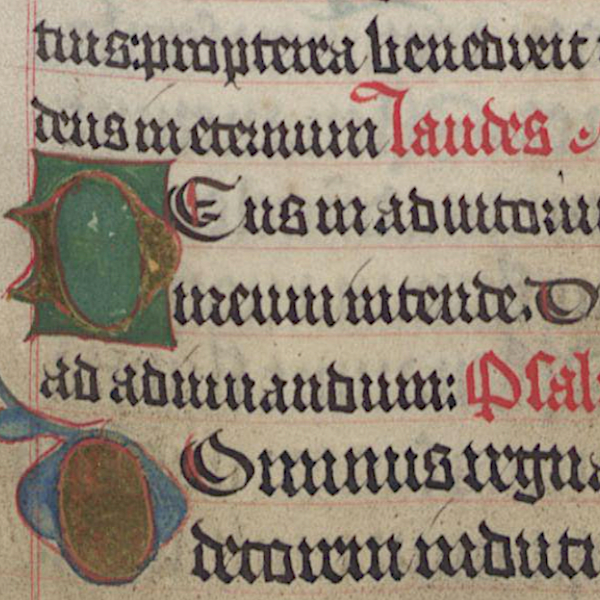 tuis: propterea benedixit
deus in eternum Laudes
DEus in adiutoriu
meum intende. D
ad adiuuandum: Psal
DOminus regna
decorem induti